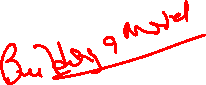 Building a Model